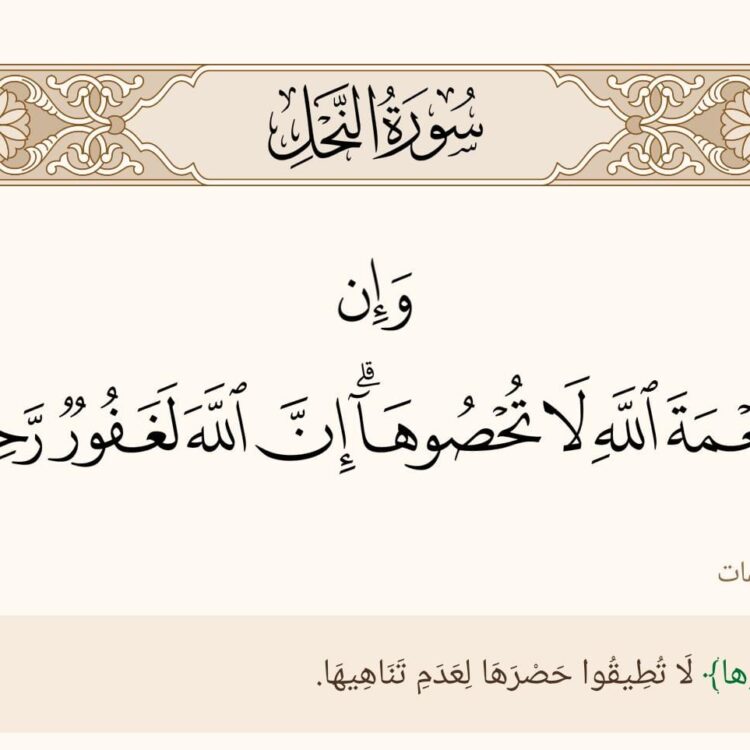 سُورَةُ النَّحْلِ
وَإِن
ٱللَّهِ لَا تُحْصُوهَآ ۗ إِنَّ ٱللَّهَ لَغَفُورٌ
لَا تُطِيقُوا حَصْرَهَا لِعَدَمِ تَنَاهِيهَا.